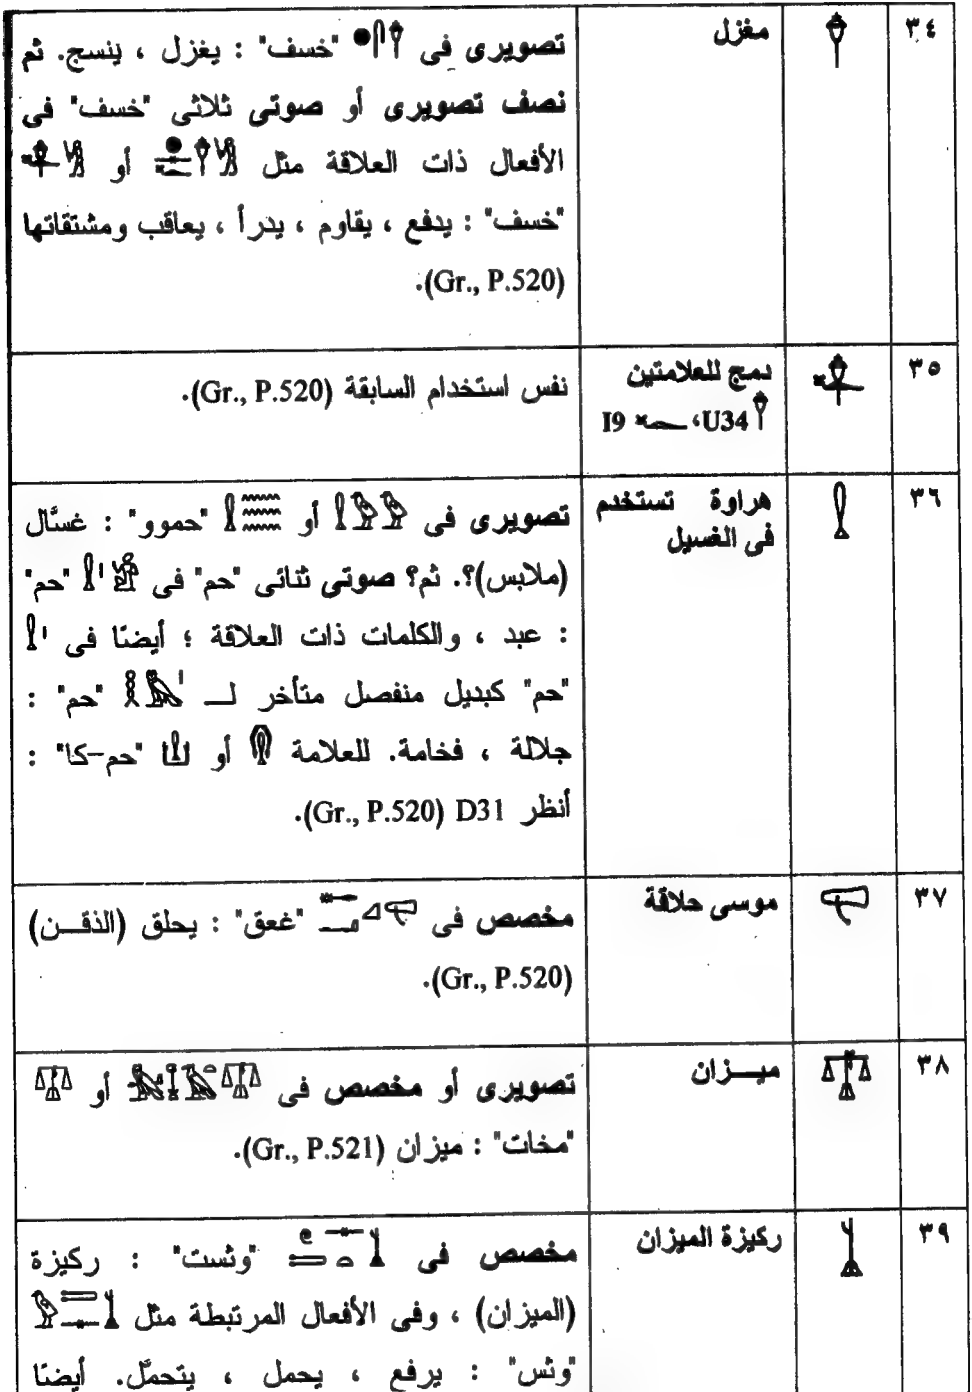 ٣٤ مغزل تصويرى فى 𓋴𓐍 "خسف" : يغزل ، ينسج. ثم
نصف تصويرى أو صوتى ثلاثى "خسف" فى
الأفعال ذات العلاقة مثل أو
"خسف" : يدفع ، يقاوم ، يدرأ ، يعاقب ومشتقاتها
(Gr., P.520).
٣٥ دمج للعلامتين
U34، I9
نفس استخدام السابقة (Gr., P.520).
٣٦ هراوة تستخدم
فى الغسيل
تصويرى فى أو "حموو" : غسَّال
(ملابس)؟. ثم؟ صوتى ثنائى "حم" فى "حم"
: عبد ، والكلمات ذات العلاقة ؛ أيضنا فى
"حم" كبديل منفصل متأخر لــ "حم" :
جلالة ، فخامة. للعلامة أو "حم-كا" :
أنظر D31 (Gr., P.520).
٣٧ موسى حلاقة
مخصص فى "غعق" : يحلق (الذقــن)
(Gr., P.520).
٣٨ ميــزان
تصويرى أو مخصص فى أو
"مخات" : ميزان (Gr., P.521).
٣٩ ركيزة الميزان
مخصص فى "وثست" : ركيزة
(الميزان) ، وفى الأفعال المرتبطة مثل
"وثس" : يرفع ، يحمل ، يتحمَّل. أيضنا